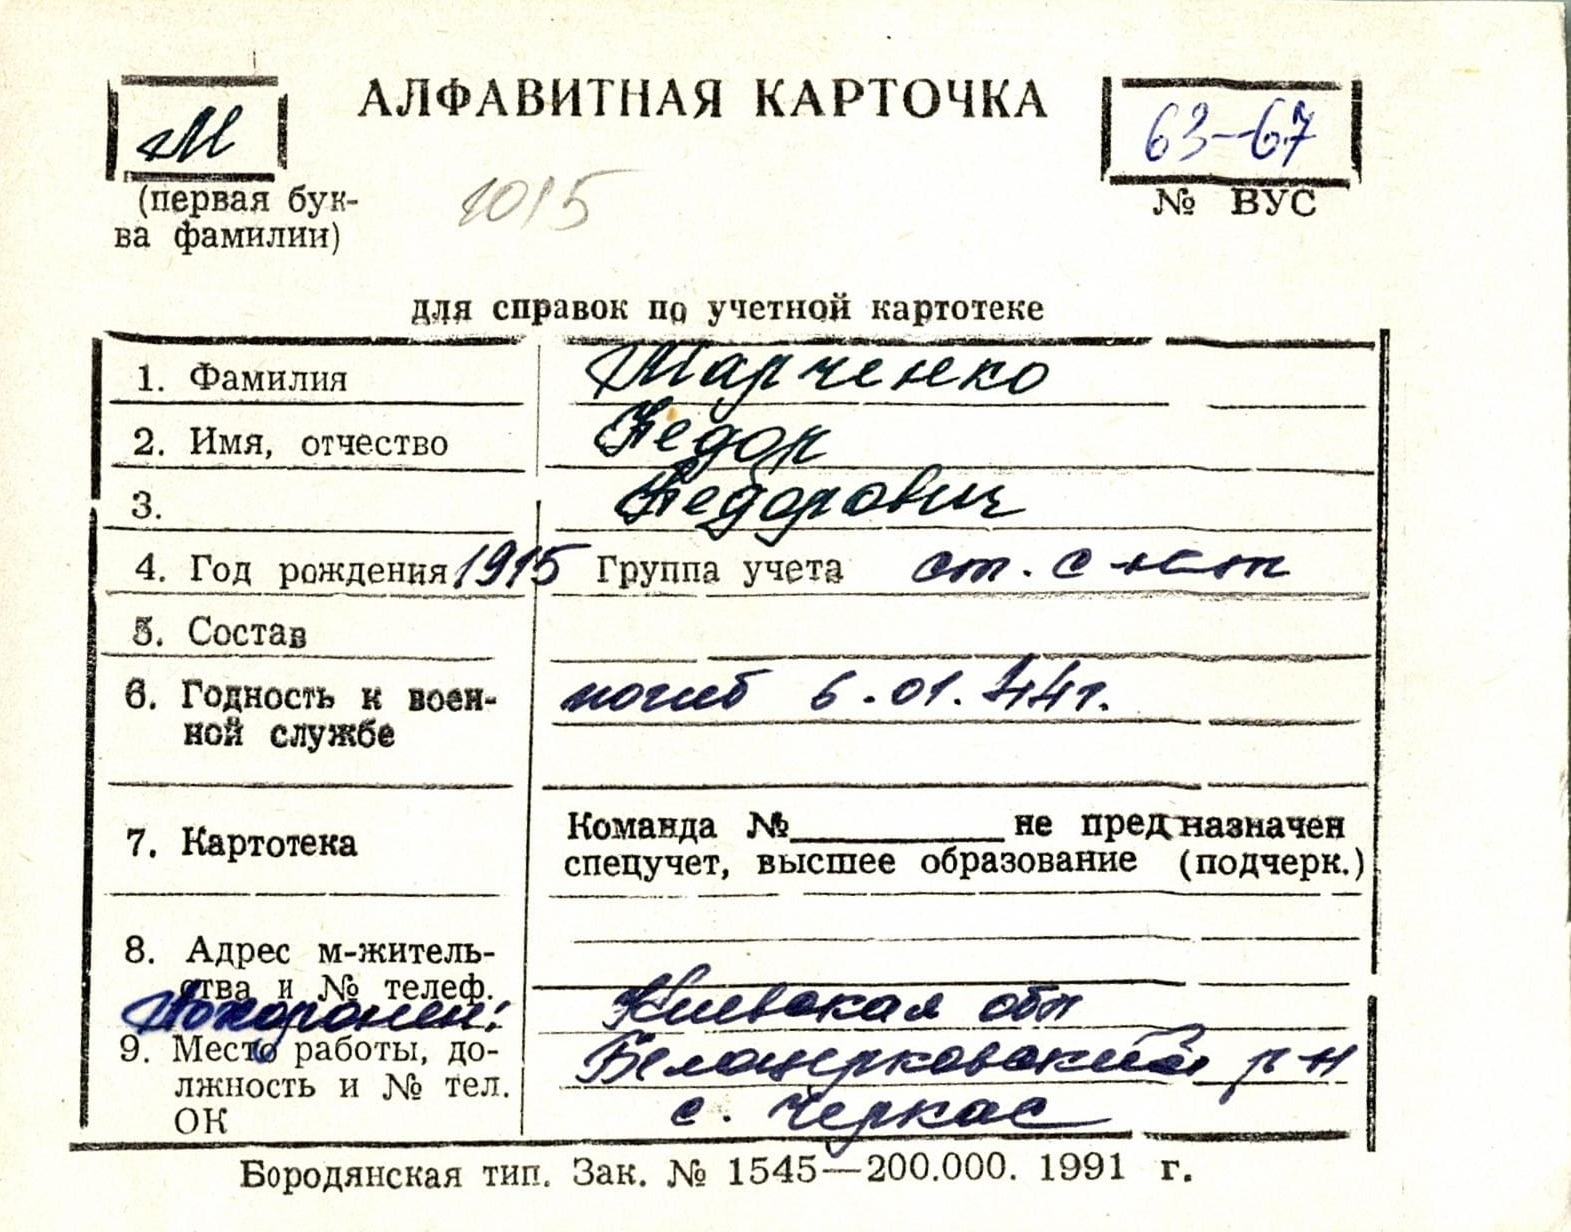 АЛФАВИТНАЯ КАРТОЧКА
М
63-67
(первая бук-
ва фамилии)
1015
№ ВУС
для справок по учетной картотеке
1. Фамилия Марченко
2. Имя, отчество Федор
3. Федорович
4. Год рождения 1915 Группа учета ст. с-нт
5. Состав
6. Годность к воен- погиб 6.01.44г.
ной службе
7. Картотека
Команда №__________ не предназначен
спецучет, высшее образование (подчерк.)
8. Адрес м-житель-
ства и № телеф.
Похоронен: Киевская обл
9. Место работы, до- Белоцерковский р-н
лжность и № тел.
ОК с. Черкас
Бородянская тип. Зак. № 1545—200.000. 1991 г.